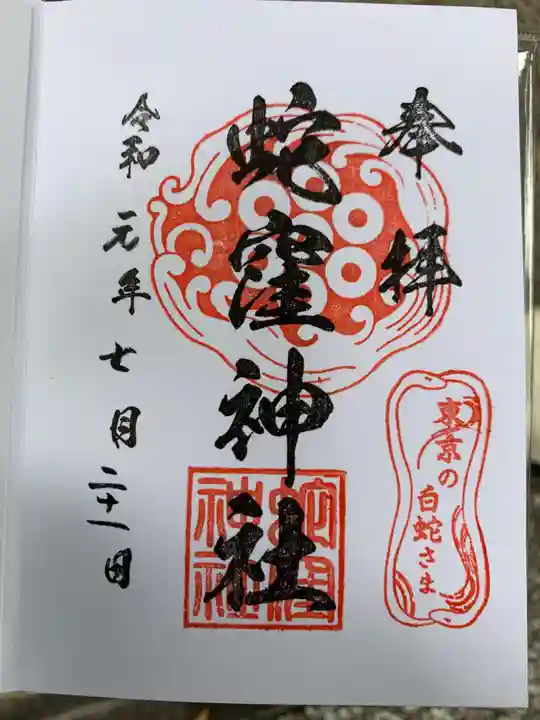 奉拝
東京の
白蛇さま
蛇窪神社
蛇窪
神社
令和元年七月二十一日